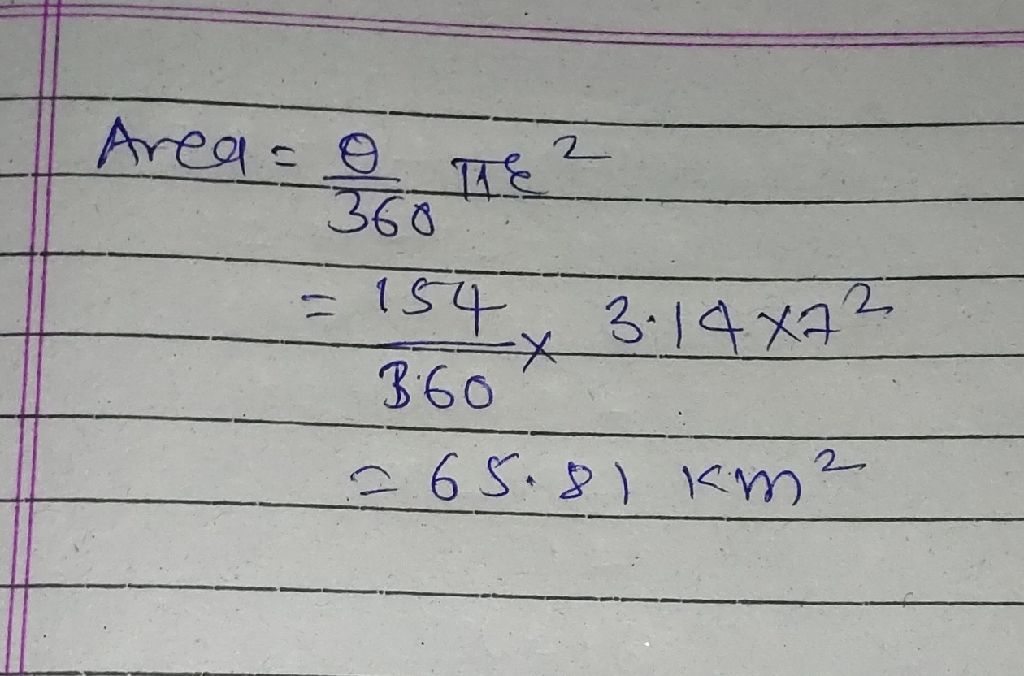 Area = θ/360 πr²
= 154/360 × 3.14 × 7²
= 65.81 km²